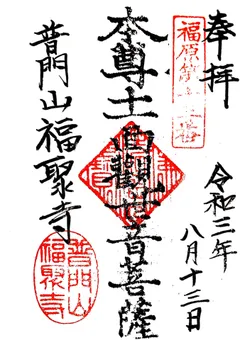 奉拝
令和三年
八月十三日
本尊十一面観世音菩薩
普門山福聚寺
普門山
福聚寺